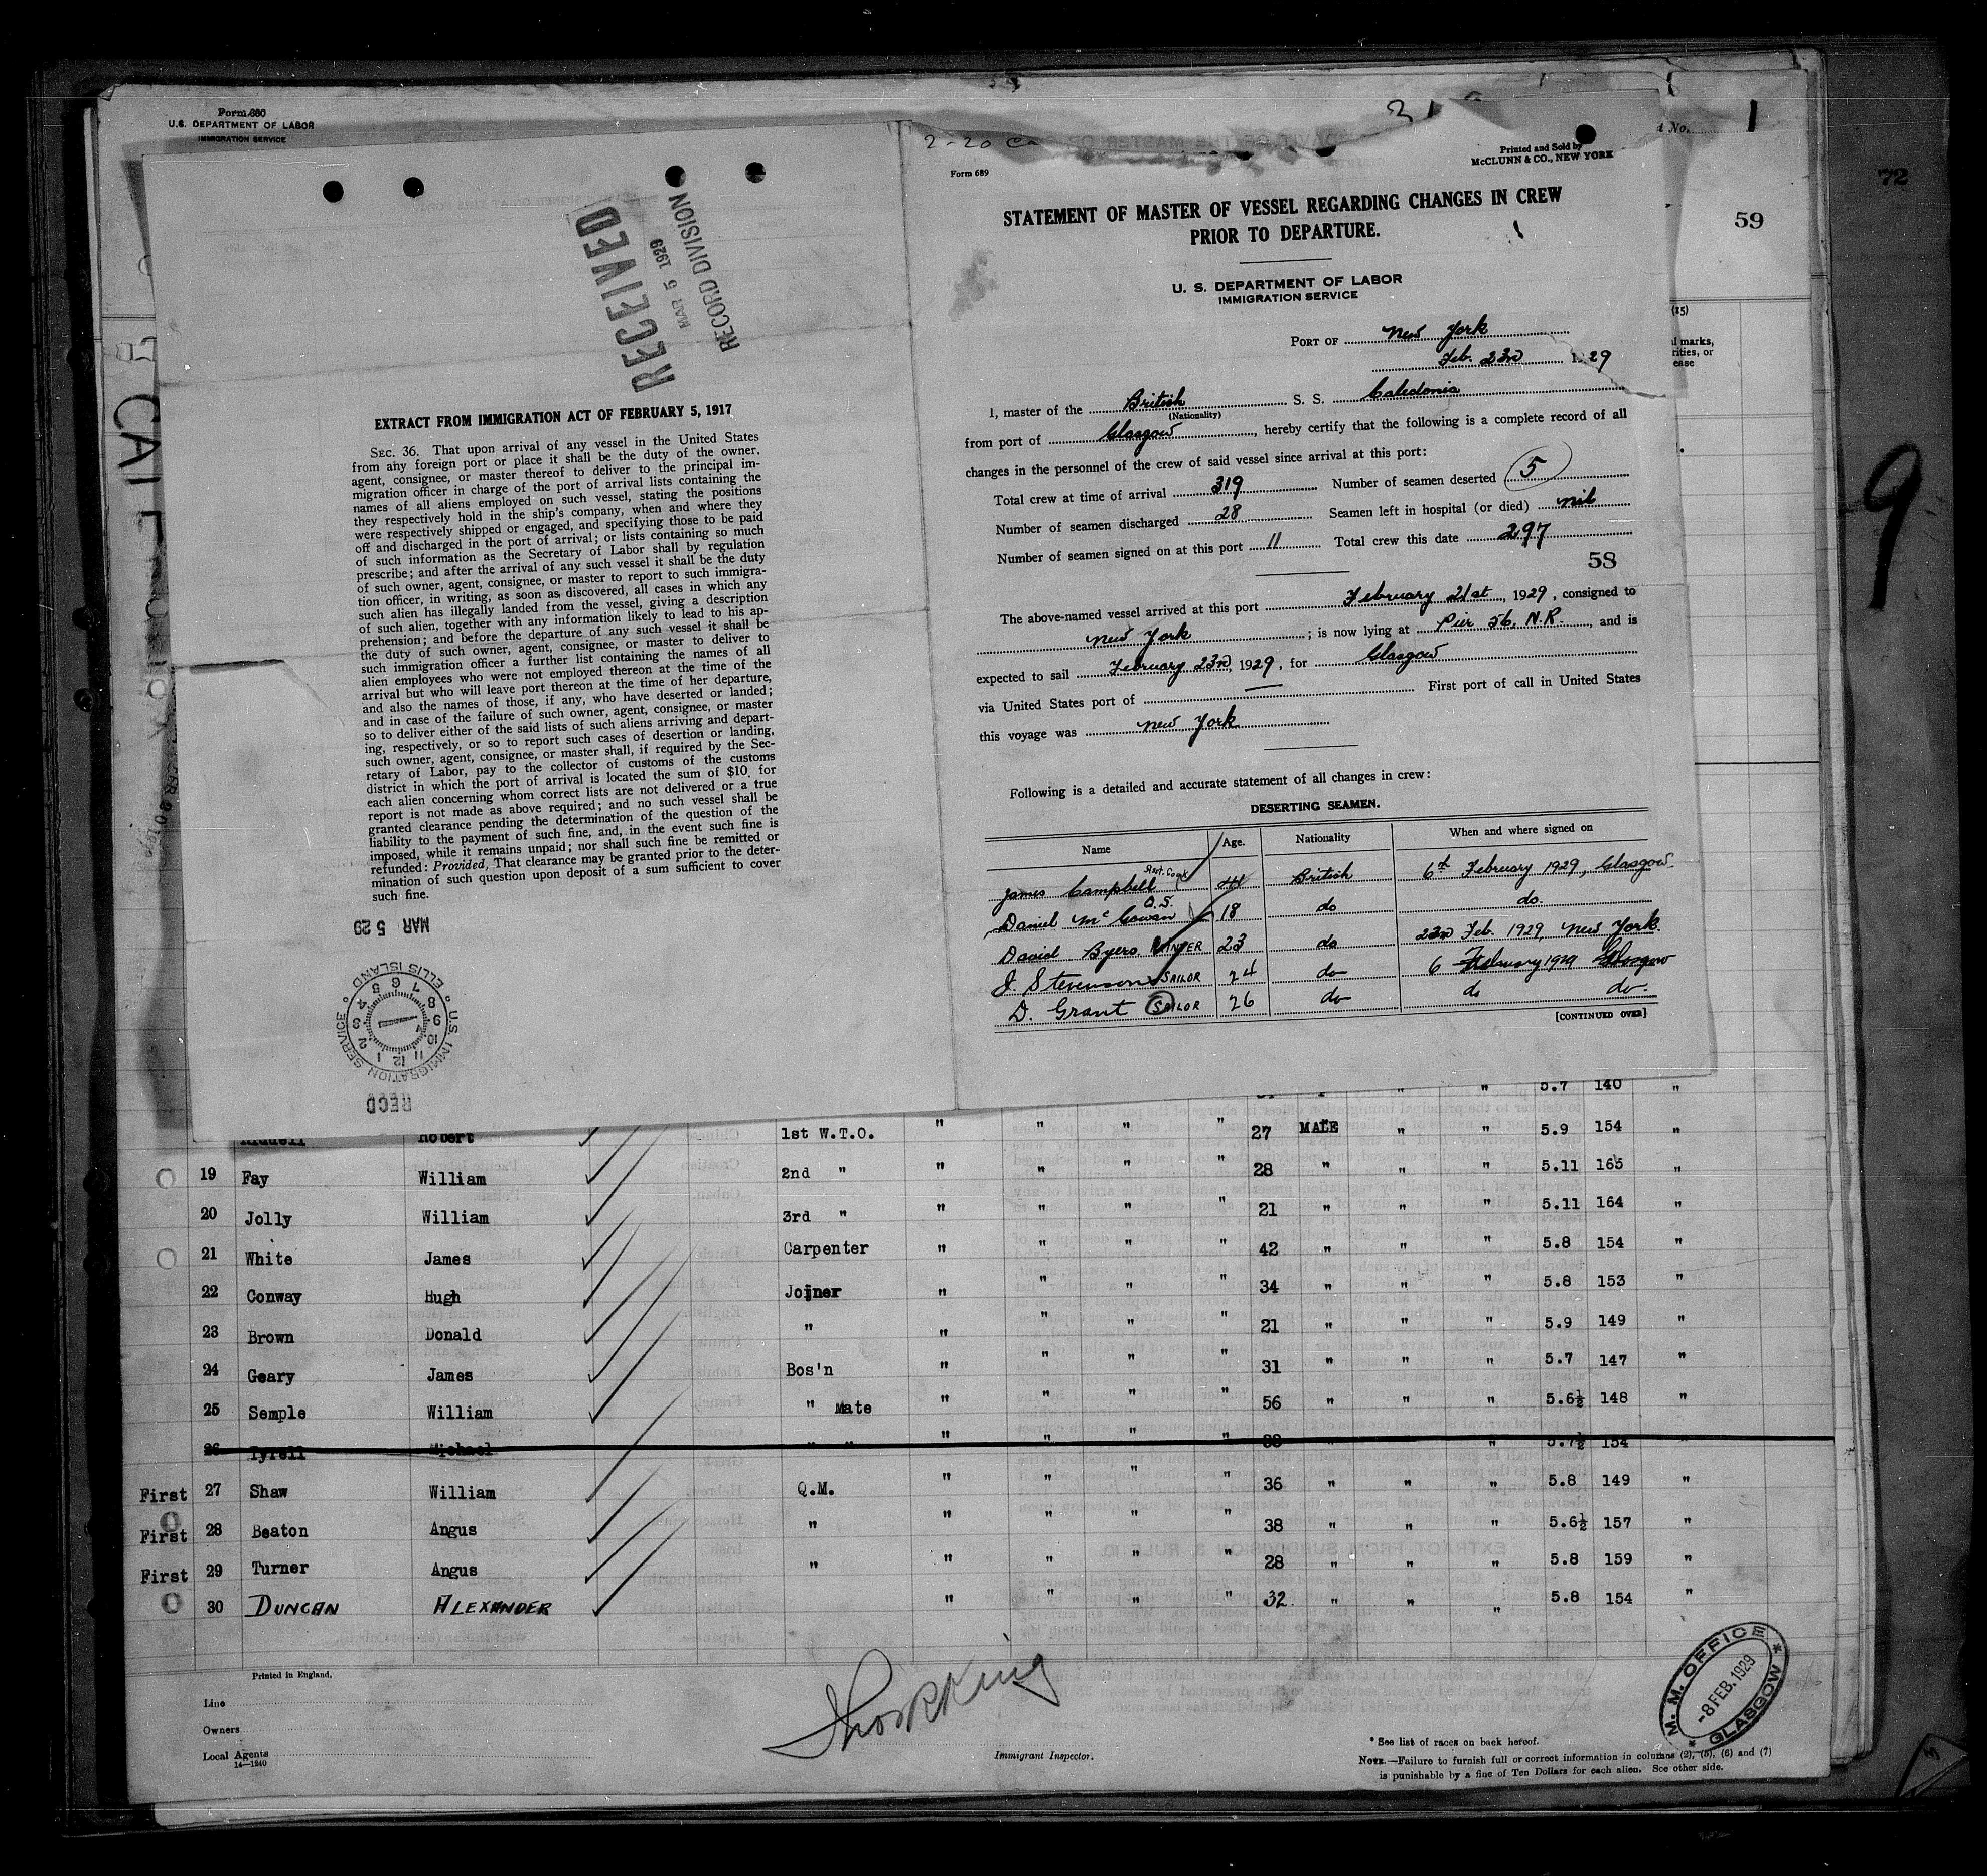 Form 680
U.S. DEPARTMENT OF LABOR
IMMIGRATION SERVICE
No. 1
72
59
(15)
marks,
ease
9
RECEIVED
MAR 5 1929
RECORD DIVISION
EXTRACT FROM IMMIGRATION ACT OF FEBRUARY 5, 1917
SEC. 36. That upon arrival of any vessel in the United States
from any foreign port or place it shall be the duty of the owner,
agent, consignee, or master thereof to deliver to the principal im-
migration officer in charge of the port of arrival lists containing the
names of all aliens employed on such vessel, stating the positions
they respectively hold in the ship's company, when and where they
were respectively shipped or engaged, and specifying those to be paid
off and discharged in the port of arrival; or lists containing so much
of such information as the Secretary of Labor shall by regulation
prescribe; and after the arrival of any such vessel it shall be the duty
of such owner, agent, consignee, or master to report to such immigra-
tion officer, in writing, as soon as discovered, all cases in which any
such alien has illegally landed from the vessel, giving a description
of such alien, together with any information likely to lead to his ap-
prehension; and before the departure of any such vessel it shall be
the duty of such owner, agent, consignee, or master to deliver to
such immigration officer a further list containing the names of all
alien employees who were not employed thereon at the time of the
arrival but who will leave port thereon at the time of her departure,
and also the names of those, if any, who have deserted or landed;
and in case of the failure of such owner, agent, consignee, or master
so to deliver either of the said lists of such aliens arriving and depart-
ing, respectively, or so to report such cases of desertion or landing,
such owner, agent, consignee, or master shall, if required by the Sec-
retary of Labor, pay to the collector of customs of the customs
district in which the port of arrival is located the sum of $10 for
each alien concerning whom correct lists are not delivered or a true
report is not made as above required; and no such vessel shall be
granted clearance pending the determination of the question of the
liability to the payment of such fine, and, in the event such fine is
imposed, while it remains unpaid; nor shall such fine be remitted or
refunded: Provided, That clearance may be granted prior to the deter-
mination of such question upon deposit of a sum sufficient to cover
such fine.
MAR 5 29
U.S. IMMIGRATION SERVICE ELLIS ISLAND
RECD
Form 689
Printed and Sold by
McCLUNN & CO., NEW YORK
STATEMENT OF MASTER OF VESSEL REGARDING CHANGES IN CREW
PRIOR TO DEPARTURE.
U. S. DEPARTMENT OF LABOR
IMMIGRATION SERVICE
PORT OF New York
Feb. 23rd 1929
I, master of the British S. S. Caledonia
(Nationality)
from port of Glasgow, hereby certify that the following is a complete record of all
changes in the personnel of the crew of said vessel since arrival at this port:
Total crew at time of arrival 319 Number of seamen deserted 5
Number of seamen discharged 28 Seamen left in hospital (or died) nil
Number of seamen signed on at this port 11 Total crew this date 297
58
The above-named vessel arrived at this port February 21st, 1929, consigned to
New York; is now lying at Pier 56, N.R., and is
expected to sail February 23rd, 1929, for Glasgow
via United States port of — First port of call in United States
this voyage was New York
Following is a detailed and accurate statement of all changes in crew:
DESERTING SEAMEN.
Name Age. Nationality When and where signed on
James Campbell Asst. Cook 44 British 6th February 1929, Glasgow.
Daniel McGowan O.S. 18 do do.
David Byers 23 do 23rd Feb. 1929, New York.
J. Stevenson SAILOR 24 do 6 February 1929 Glasgow
D. Grant SAILOR 26 do do do.
[CONTINUED OVER]
5.7 140 "
Robert 1st W.T.O. " " " " 27 MALE " " 5.9 154 "
19 Fay William 2nd " " " " " 28 " " " 5.11 165 "
20 Jolly William 3rd " " " " " 21 " " " 5.11 164 "
21 White James Carpenter " " " " 42 " " " 5.8 154 "
22 Conway Hugh Joiner " " " " 34 " " " 5.8 153 "
23 Brown Donald " " " " " 21 " " " 5.9 149 "
24 Geary James Bos'n " " " " 31 " " " 5.7 147 "
25 Semple William " Mate " " " " 56 " " " 5.6½ 148 "
26 Tyrell Michael " " " " " " 38 " 5.7½ 154 "
First 27 Shaw William Q.M. " " " " 36 " " " 5.8 149 "
First 28 Beaton Angus " " " " " 38 " " " 5.6½ 157 "
First 29 Turner Angus " " " " " 28 " " " 5.8 159 "
30 DUNCAN ALEXANDER " " " " 32 " " " 5.8 154 "
Printed in England.
Line
Owners
Local Agents
14—1240
Immigrant Inspector.
M. M. OFFICE
-8 FEB. 1929
GLASGOW
* See list of races on back hereof.
NOTE.—Failure to furnish full or correct information in columns (2), (5), (6) and (7)
is punishable by a fine of Ten Dollars for each alien. See other side.